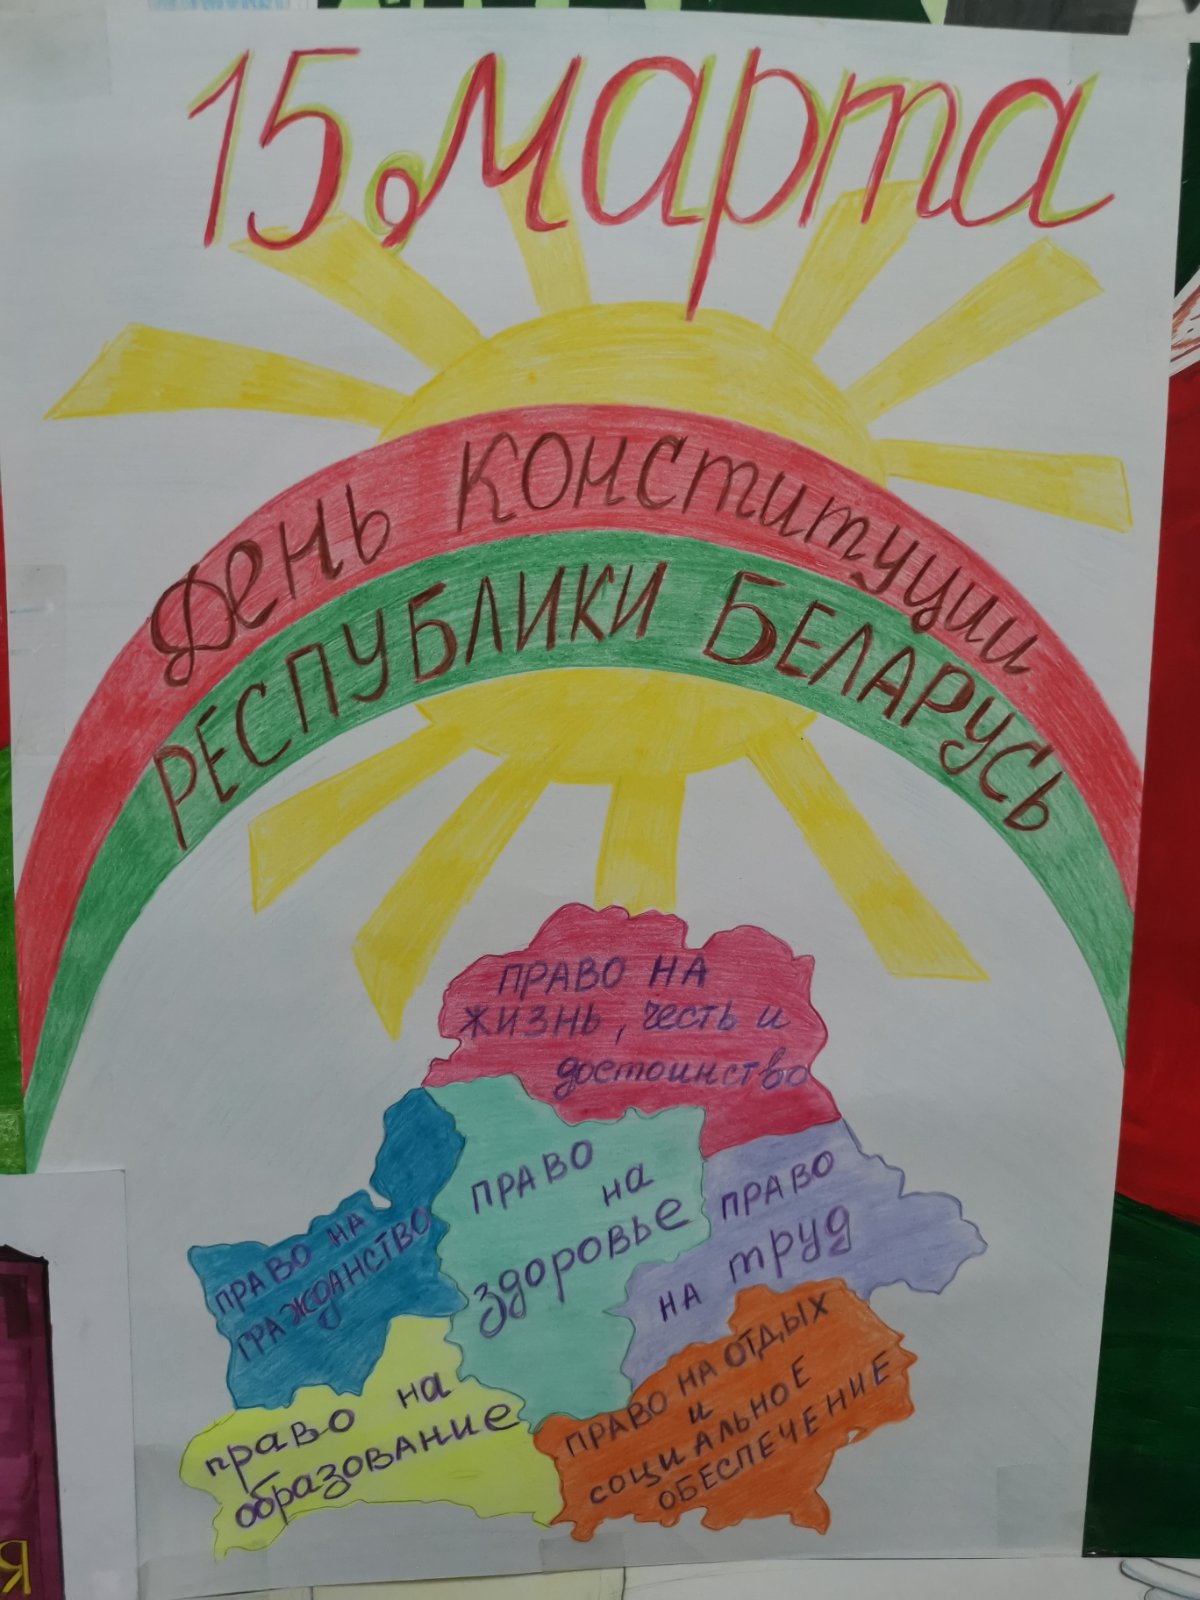 15 марта
День Конституции
РЕСПУБЛИКИ БЕЛАРУСЬ
ПРАВО НА
ЖИЗНЬ, честь и
достоинство
ПРАВО НА
ГРАЖДАНСТВО
ПРАВО
на
здоровье
ПРАВО
НА труд
право на
образование
ПРАВО НА ОТДЫХ
и
СОЦИАЛЬНОЕ
ОБЕСПЕЧЕНИЕ
Я